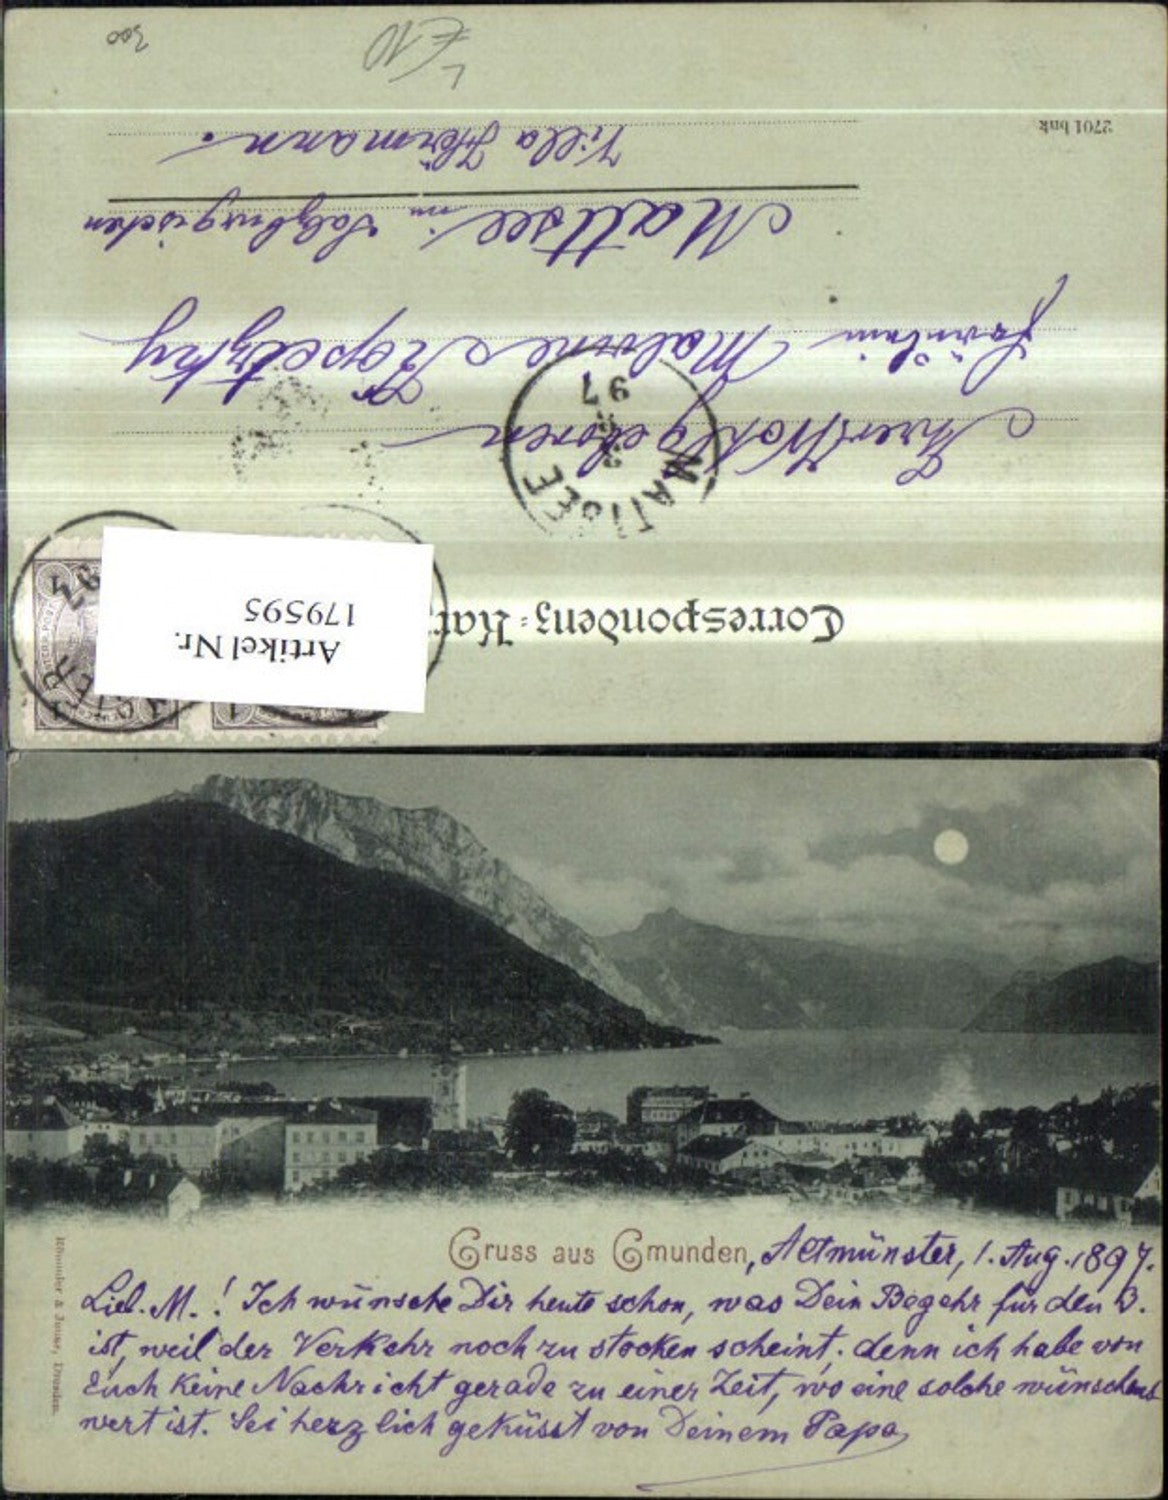 Correspondenz-Kar
Artikel Nr.
179595
MATTSEE
97
Ihrer Wohlgeboren
Fräulein Malvine
Mattsee im Salzburgischen
Villa Hörmann.
2701 bnk
€ 10
300
Gruss aus Gmunden, Altmünster, 1. Aug. 1897.
Lieb. M.! Ich wünsche Dir heute schon, was Dein Begehr für den 3.
ist, weil der Verkehr noch zu stocken scheint; denn ich habe von
Euch keine Nachricht gerade zu einer Zeit, wo eine solche wünschens
wert ist. Sei herzlich geküsst von Deinem Papa
Römmler & Jonas, Dresden.